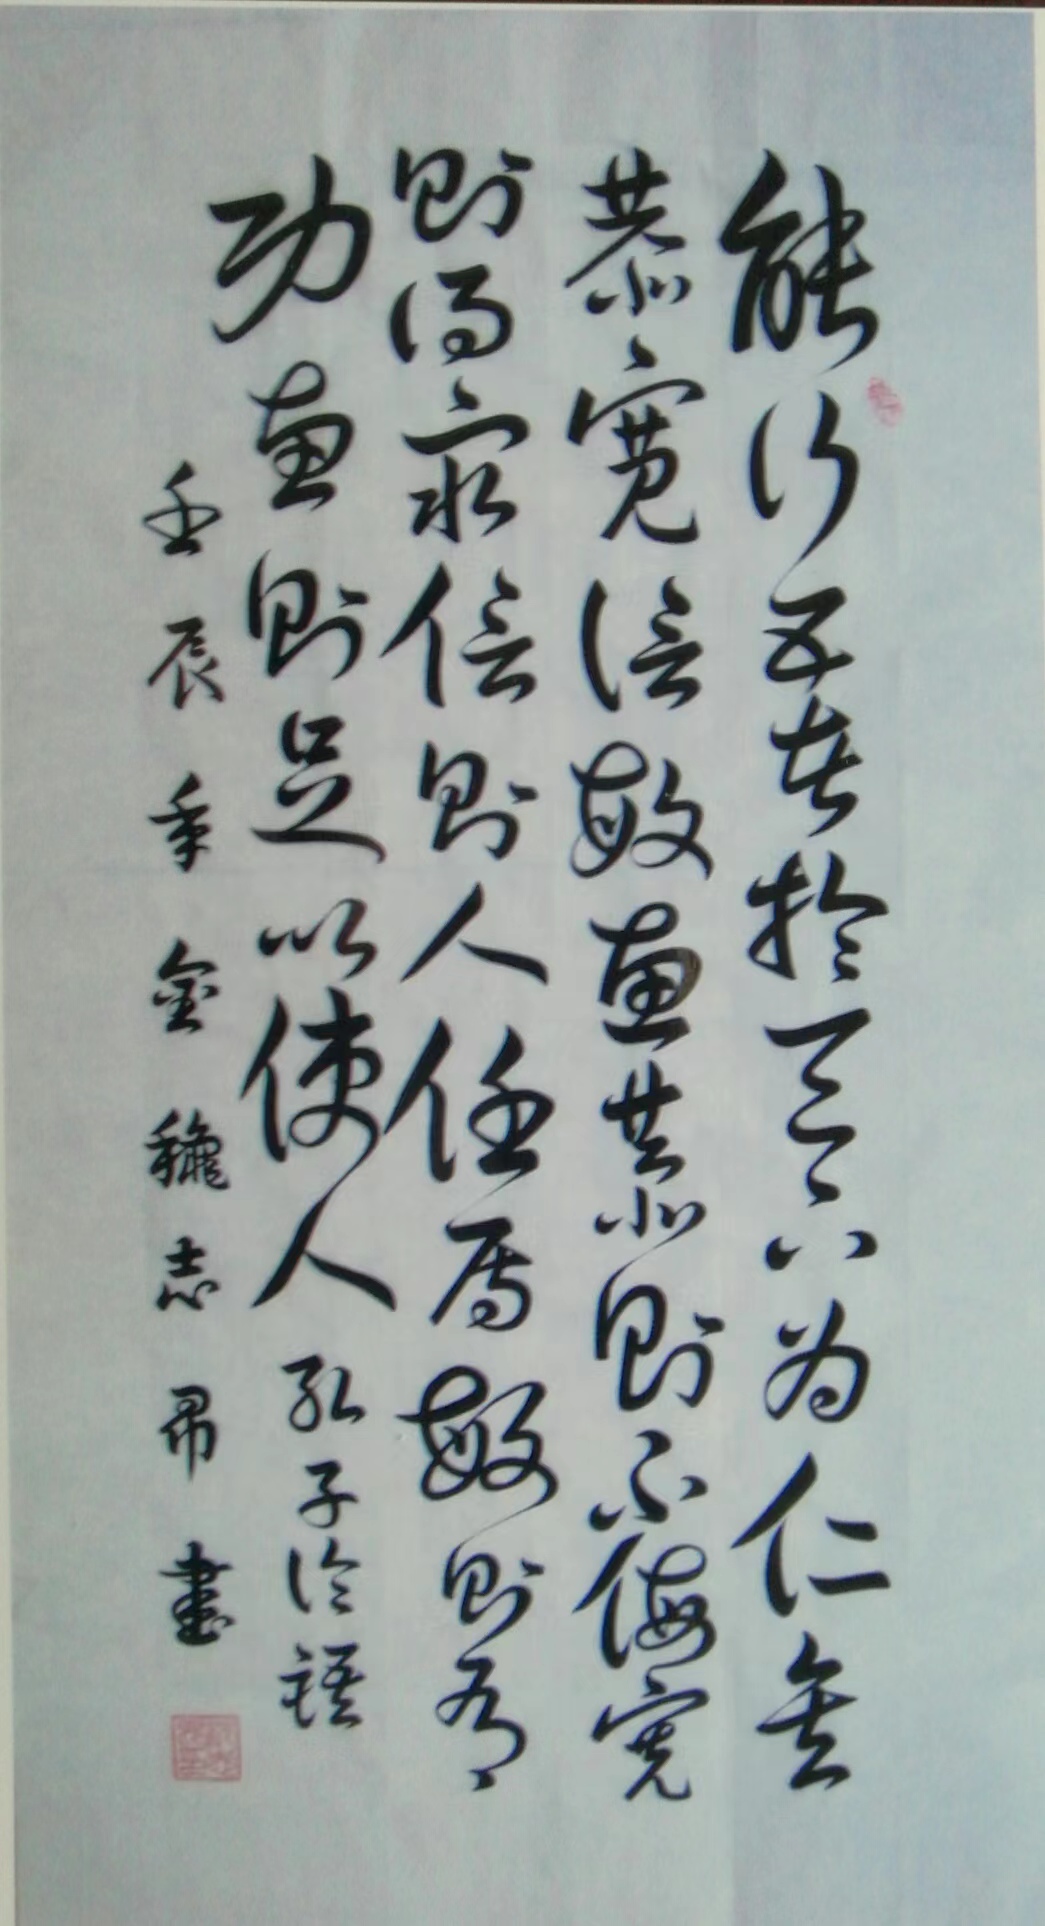 能行五者於天下為仁矣
恭寬信敏惠恭則不侮寬
則得眾信則人任焉敏則有
功惠則足以使人孔子論語
壬辰年金秋志昂書